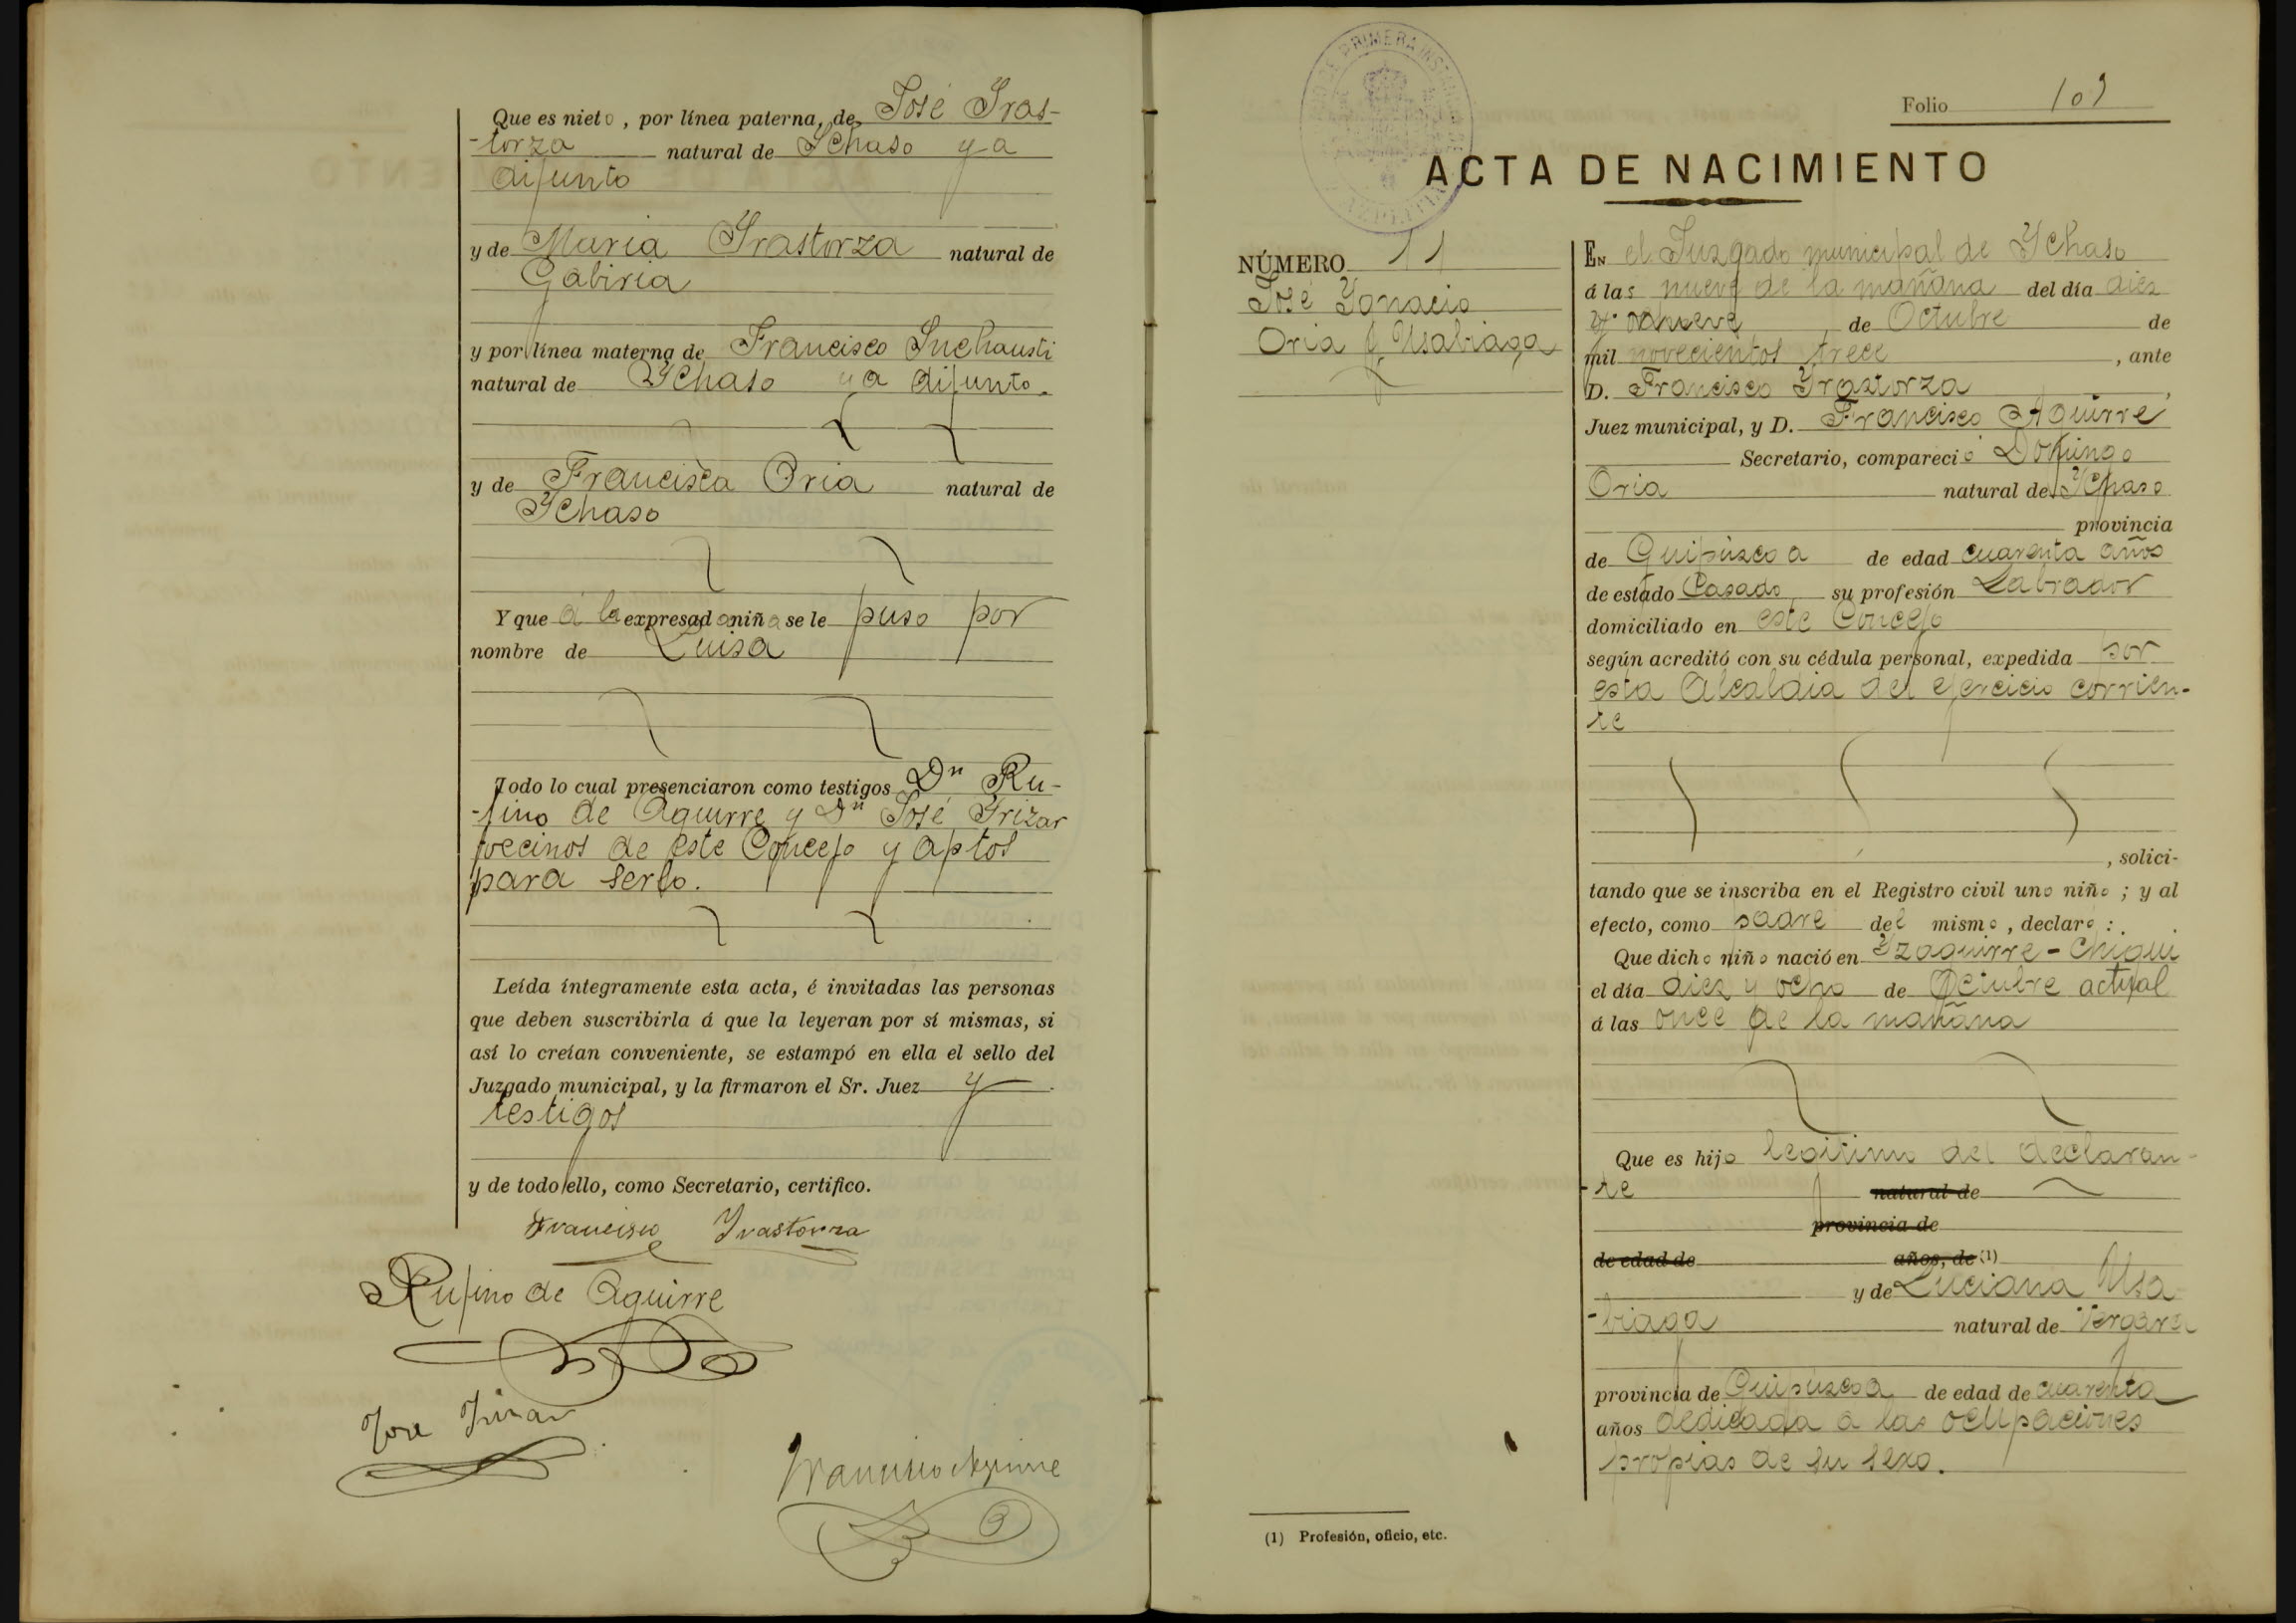 Que es nieto , por línea paterna, de José Yras-
-torza natural de Ychaso ya
difunto
y de Maria Yrastorza natural de
Gabiria
y por línea materna de Francisco Inchausti
natural de Ychaso ya difunto.
y de Francisca Oria natural de
Ychaso
Y que á la expresada niña se le puso por
nombre de Luisa
Todo lo cual presenciaron como testigos Dn Ru-
-fino de Aguirre y Dn José Yrizar
vecinos de este Concejo y aptos
para serlo.
Leída íntegramente esta acta, é invitadas las personas
que deben suscribirla á que la leyeran por sí mismas, si
así lo creían conveniente, se estampó en ella el sello del
Juzgado municipal, y la firmaron el Sr. Juez y
testigos
y de todo ello, como Secretario, certifico.
Francisco Yrastorza
Rufino de Aguirre
Jose Yrizar
Francisco Aguirre
Folio 109
ACTA DE NACIMIENTO
NÚMERO 11
José Ygnacio
Oria y Usabiaga
EN el Juzgado municipal de Ychaso
á las nueve de la mañana del día diez
y nueve de Octubre de
mil novecientos trece , ante
D. Francisco Yrastorza ,
Juez municipal, y D. Francisco Aguirre
Secretario, compareció Domingo
Oria natural de Ychaso
provincia
de Guipúzcoa de edad cuarenta años
de estado Casado su profesión Labrador
domiciliado en este Concejo
según acreditó con su cédula personal, expedida por
esta Alcaldia del ejercicio corrien-
te
, solici-
tando que se inscriba en el Registro civil uno niño ; y al
efecto, como padre del mismo , declaró :
Que dicho niño nació en Yzaguirre-Chiqui
el día diez y ocho de Octubre actual
á las once de la mañana
Que es hijo legitimo del declaran-
-te natural de
provincia de
de edad de años, de (1)
y de Luciana Usa
-biaga natural de Vergara
provincia de Guipúzcoa de edad de cuarenta
años dedicada a las ocupaciones
propias de su sexo.
(1) Profesión, oficio, etc.